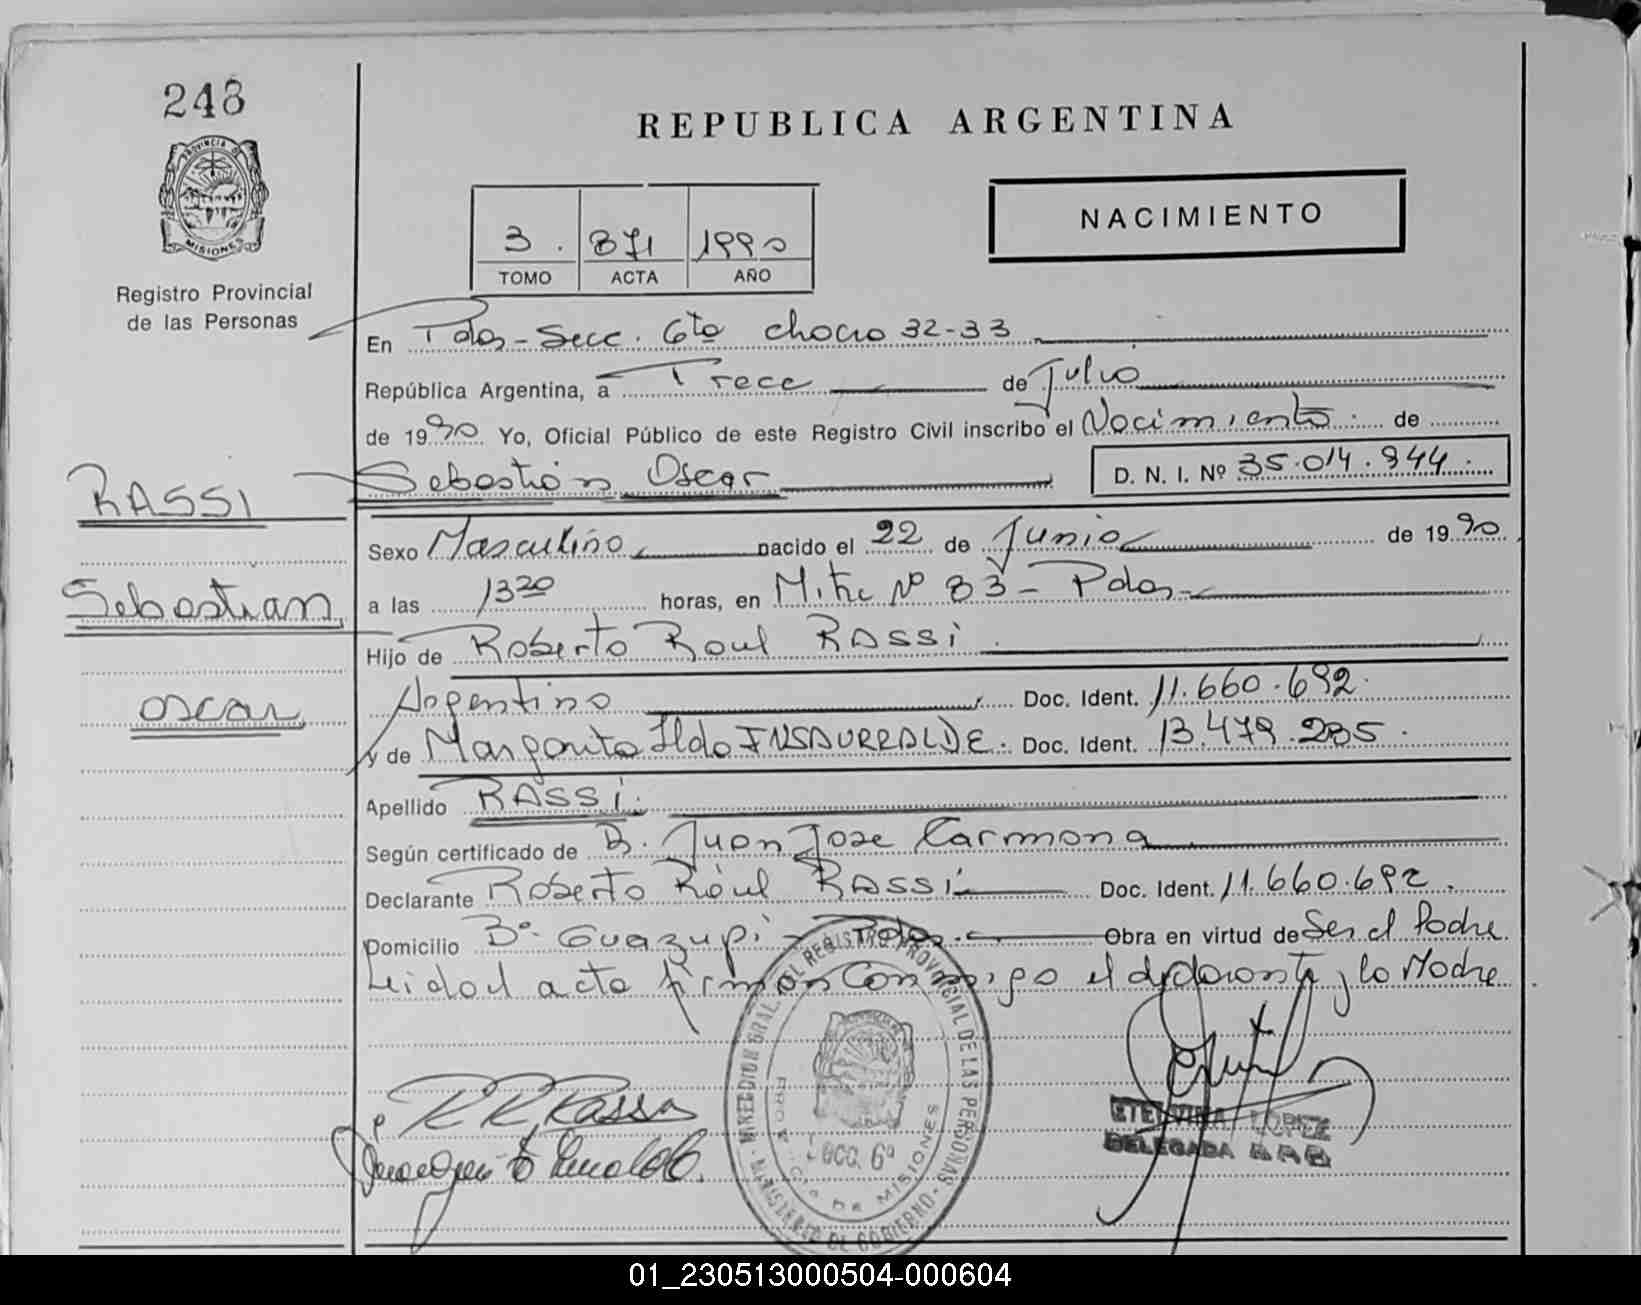 248
REPUBLICA ARGENTINA
PROVINCIA DE
MISIONES
NACIMIENTO
3. 871 1990
TOMO ACTA AÑO
Registro Provincial
de las Personas
En Pdas-Secc. 6ta chacra 32-33
República Argentina, a Trece de Julio
de 1990 Yo, Oficial Público de este Registro Civil inscribo el Nacimiento de
RASSI
Sebastián Oscar D. N. I. Nº 35.014.944.
Sexo Masculino nacido el 22 de Junio de 1990
Sebastián
a las 13 20 horas, en Mitre Nº 83 - Pdas.
Hijo de Roberto Raul RASSI
Oscar
Argentino Doc. Ident. 11.660.692.
y de Margarita Ilda INSAURRALDE. Doc. Ident. 13.479.285.
Apellido RASSI.
Según certificado de B. Juan Jose Carmona
Declarante Roberto Raul RASSI Doc. Ident. 11.660.692.
Domicilio Bº Guazupi - Pdas. Obra en virtud de Ser el Padre
Leida el acta firman Conmigo el declarante y la Madre
DIRECCION GRAL. DEL REGISTRO PROVINCIAL DE LAS PERSONAS
MINISTERIO DE GOBIERNO
SECC. 6º
PROVINCIA DE MISIONES
R R Rassi
ETELVINA LOPEZ
DELEGADA
01_230513000504-000604